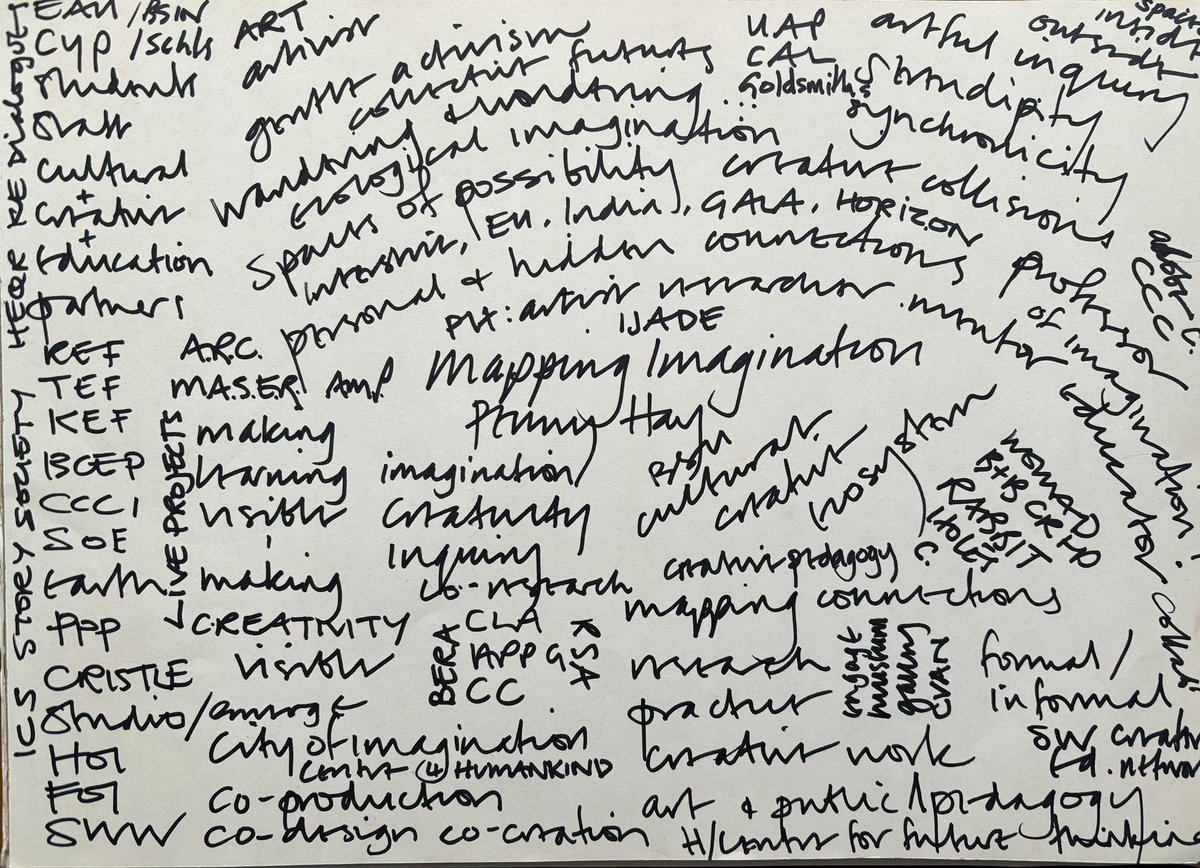 HEQR RE Dialogues
ICS STORY SOCIETY
EAU / BSU
CYP / Schls
Students
Staff
Cultural
+
Creative
+
Education
partners
REF
TEF
KEF
BCEP
CCCI
SOE
Earth
PPP
CRISTLE
Studio / emerge
HOI
FOI
SWW
LIVE PROJECTS
ART
artivist
gentle activism
collective futures
wandering & wondering
ecological imagination
spaces of possibility
Interstice, EU, India, GALA, HORIZON
personal & hidden connections
PH: artist researcher mentor educator
IJADE
UAP
CAL
Goldsmiths
artful inquiry
synchronicity
creative collisions
professor
of imagination
spaces
inside
outside
CCC
A.R.C.
M.A.S.E.R.
Amp
Mapping Imagination
Penny Hay
making
learning
visible
making
CREATIVITY
visible
imagination
creativity
inquiry
co-research
cultural
creative
ecosystem
creative pedagogy
mapping connections
NOMAD
B+B CRHD
RABBIT
HOLE
BERA
CLA
APPG
CC
RSA
research
practice
creative work
engage
museum
gallery
CVAN
formal /
informal
SW creative
Ed. network
City of Imagination
Centre 4 HUMANKIND
co-production
co-design co-creation
art & public / pedagogy
H/Center for future thinking